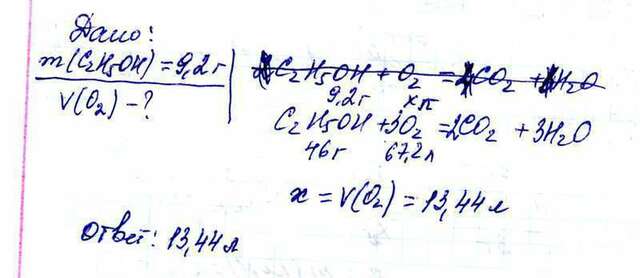 Дано:
m(C₂H₅OH) = 9,2 г
V(O₂) – ?
C₂H₅OH + O₂ = CO₂ + H₂O
9,2 г x л
C₂H₅OH + 3O₂ = 2CO₂ + 3H₂O
46 г 67,2 л
x = V(O₂) = 13,44 л
Ответ: 13,44 л